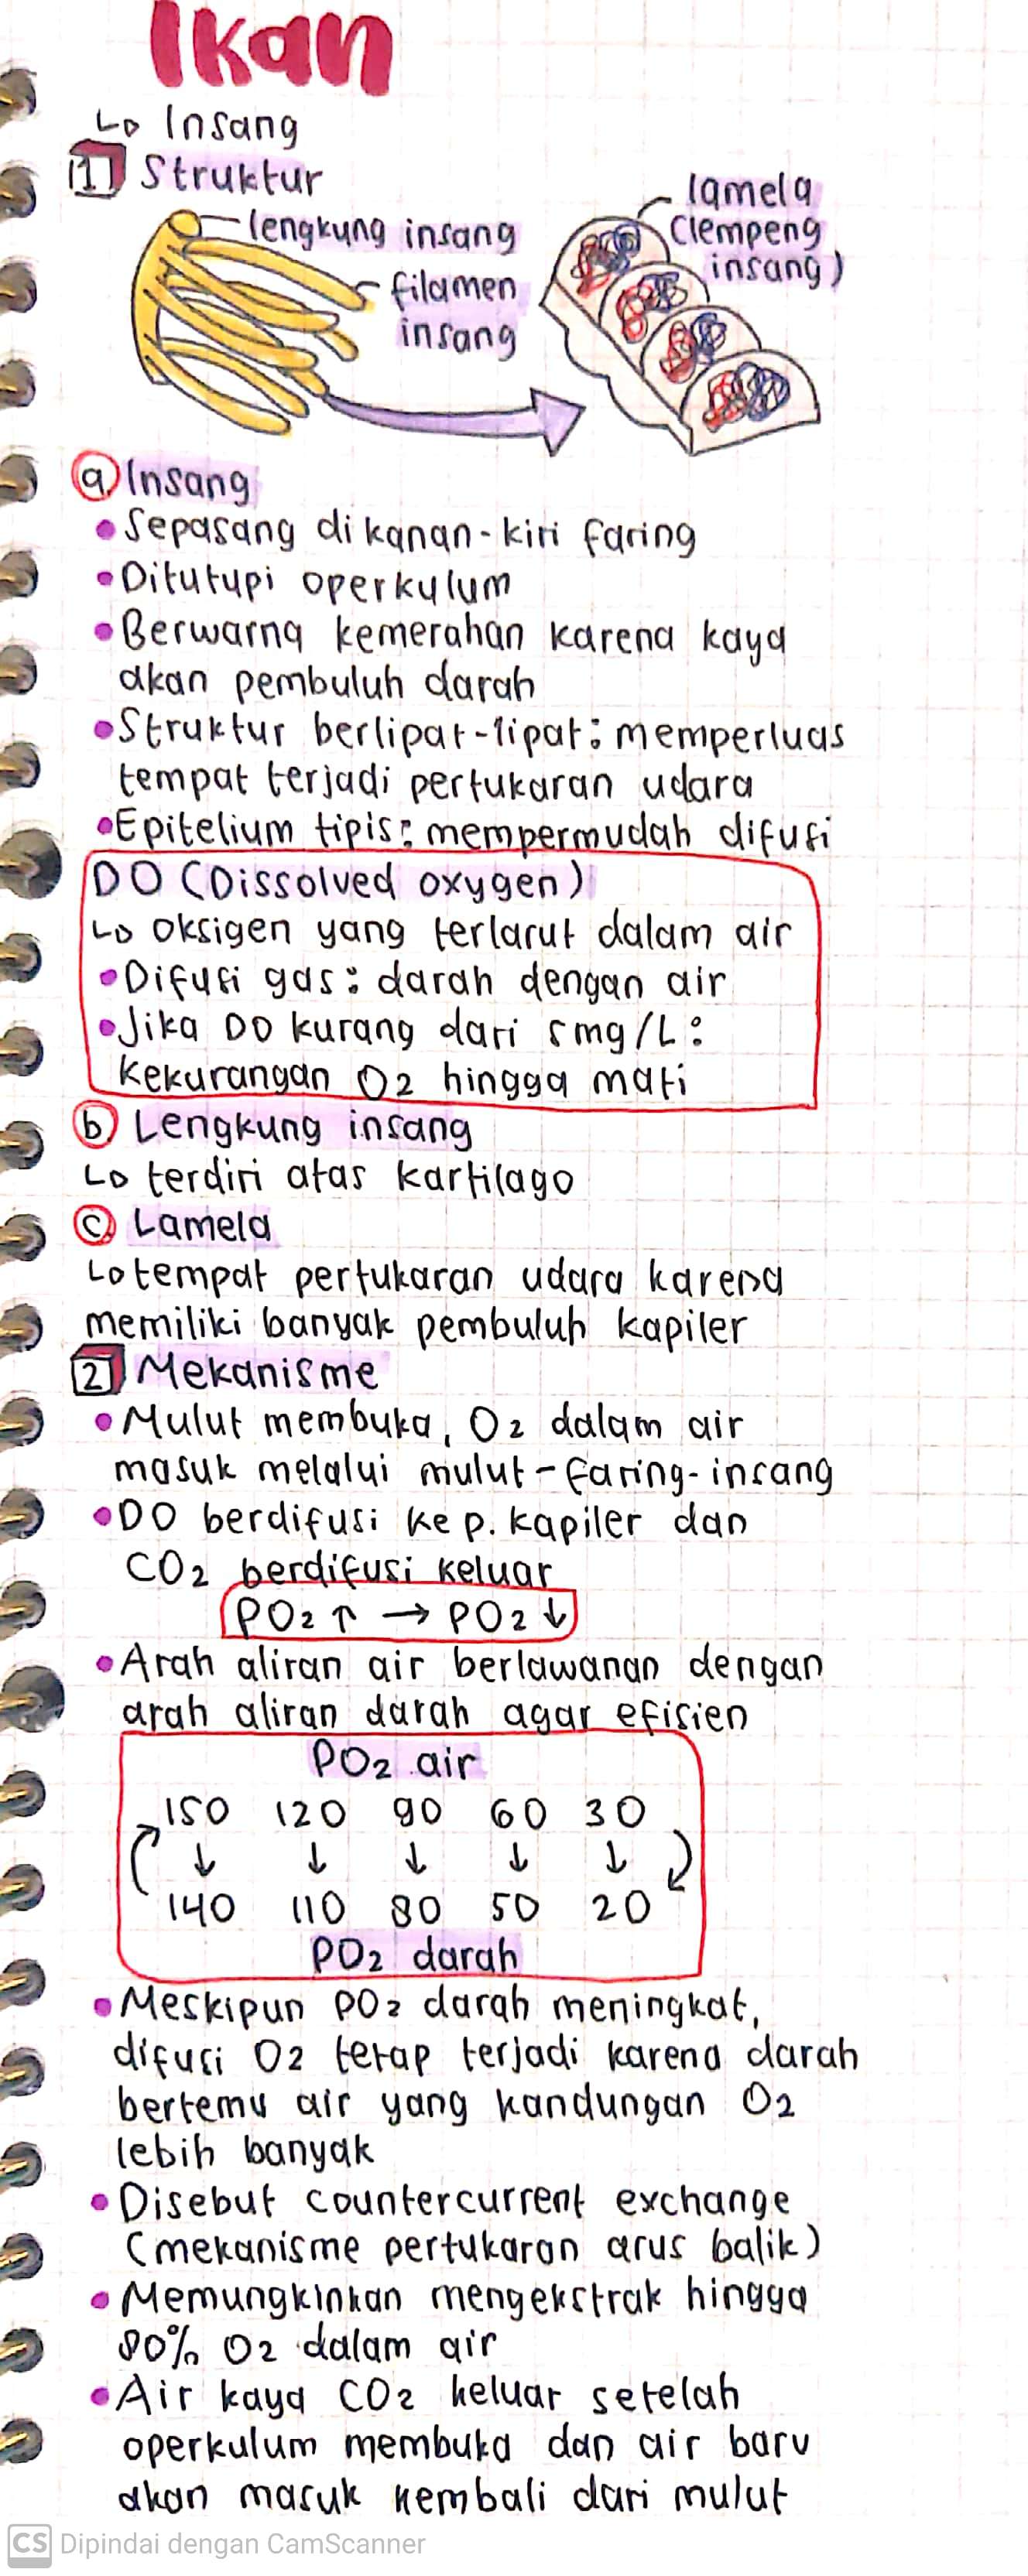 Ikan
↳ Insang
1 Struktur
lengkung insang
filamen
insang
lamela
(lempeng
insang)
a Insang
• Sepasang di kanan-kiri faring
• Ditutupi operkulum
• Berwarna kemerahan karena kaya
akan pembuluh darah
• Struktur berlipat-lipat: memperluas
tempat terjadi pertukaran udara
• Epitelium tipis: mempermudah difusi
DO (Dissolved oxygen)
↳ oksigen yang terlarut dalam air
• Difusi gas: darah dengan air
• Jika DO kurang dari 5mg/L:
kekurangan O2 hingga mati
b Lengkung insang
↳ terdiri atas kartilago
c Lamela
↳ tempat pertukaran udara karena
memiliki banyak pembuluh kapiler
2 Mekanisme
• Mulut membuka, O2 dalam air
masuk melalui mulut-faring-insang
• DO berdifusi ke p. kapiler dan
CO2 berdifusi keluar
PO2 ↑ → PO2 ↓
• Arah aliran air berlawanan dengan
arah aliran darah agar efisien
PO2 air
150 120 90 60 30
↓ ↓ ↓ ↓ ↓
140 110 80 50 20
PO2 darah
• Meskipun PO2 darah meningkat,
difusi O2 tetap terjadi karena darah
bertemu air yang kandungan O2
lebih banyak
• Disebut countercurrent exchange
(mekanisme pertukaran arus balik)
• Memungkinkan mengekstrak hingga
80% O2 dalam air
• Air kaya CO2 keluar setelah
operkulum membuka dan air baru
akan masuk kembali dari mulut
CS Dipindai dengan CamScanner